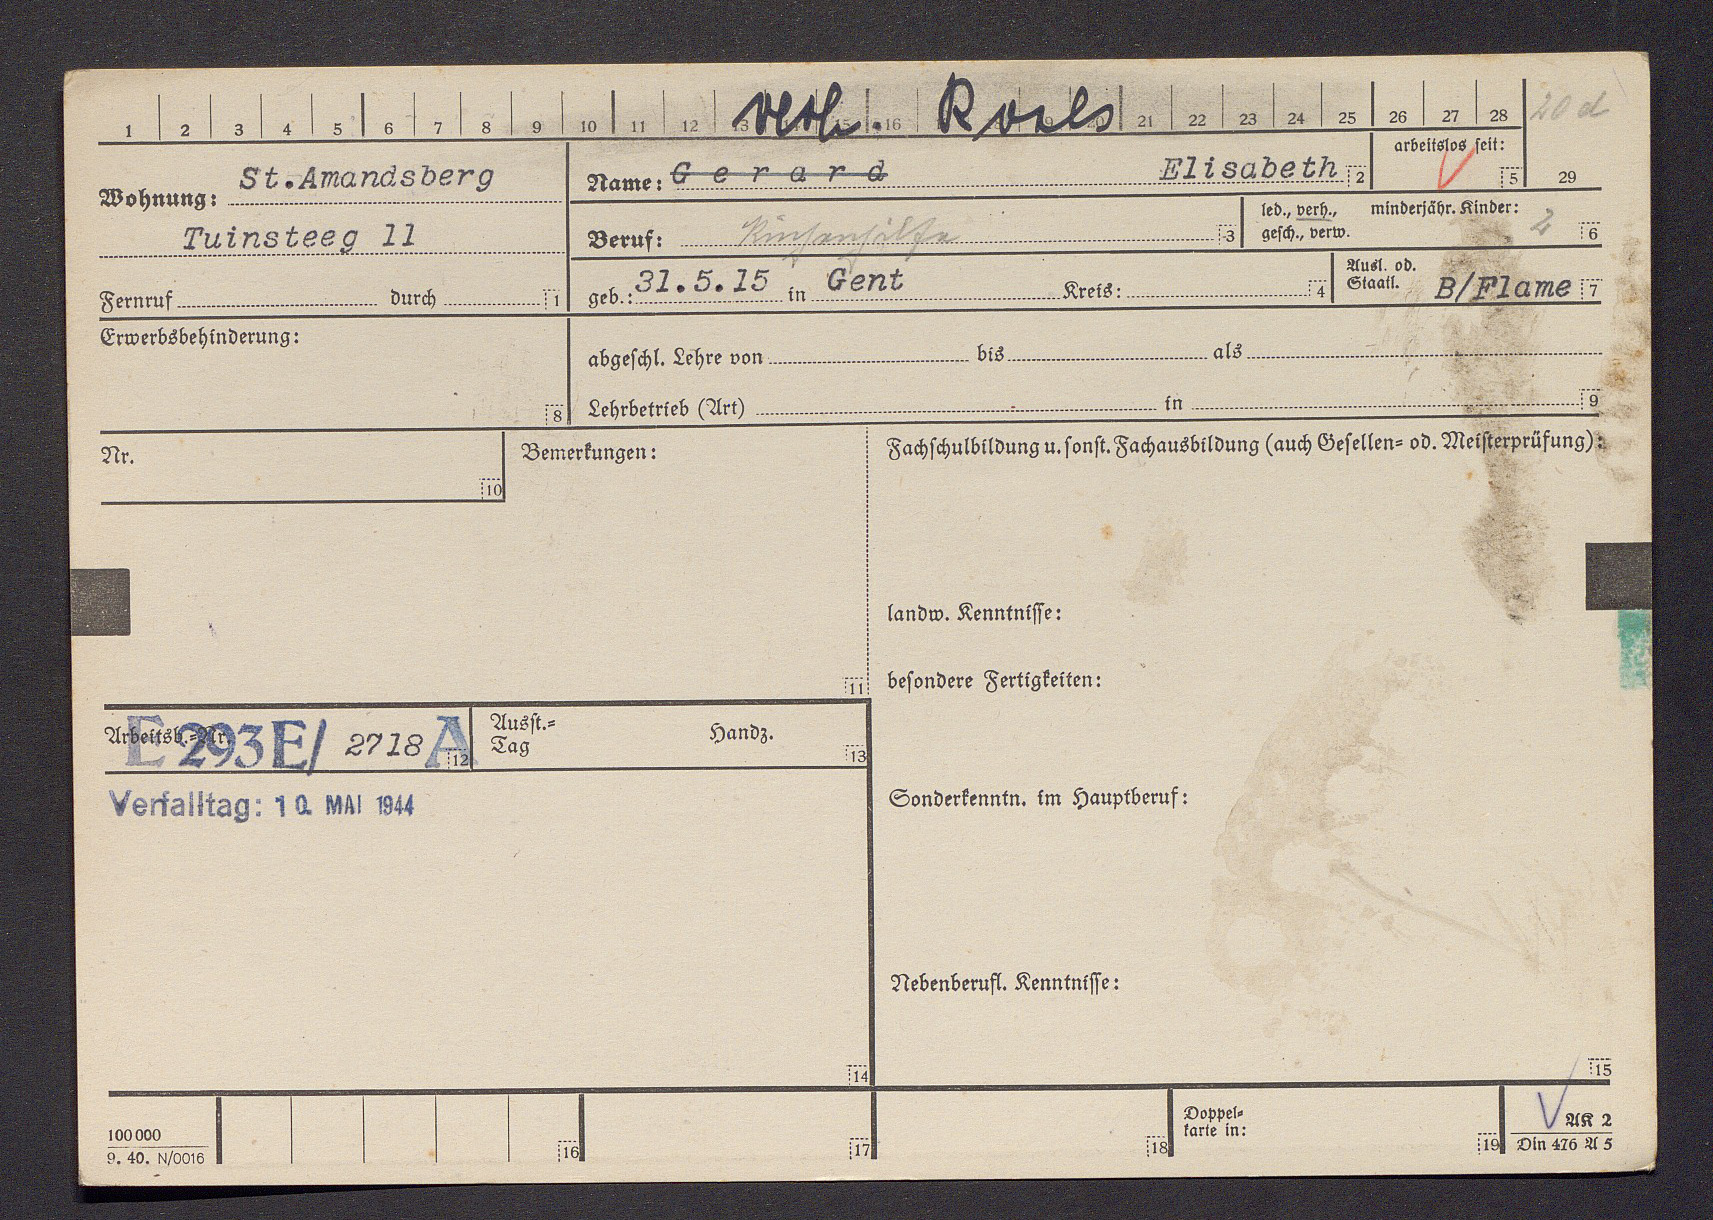 verh. Roels
1 2 3 4 5 6 7 8 9 10 11 12 13 15 16 20 21 22 23 24 25 26 27 28 20 d
Wohnung: St.Amandsberg
Tuinsteeg 11
Fernruf durch 1
Name: G e r a r d Elisabeth 2
arbeitslos seit: 5 29
Beruf: Küchenhilfe 3
led., verh., gesch., verw.
minderjähr. Kinder: 2 6
geb.: 31.5.15 in Gent Kreis: 4
Ausl. od. Staatl. B/Flame 7
Erwerbsbehinderung: 8
abgeschl. Lehre von bis als
Lehrbetrieb (Art) in 9
Nr. 10
Bemerkungen: 11
Fachschulbildung u. sonst. Fachausbildung (auch Gesellen- od. Meisterprüfung):
landw. Kenntnisse:
besondere Fertigkeiten:
Arbeitsb.-Nr. E 293E/ 2718 A 12
Ausst.-Tag Handz. 13
Verfalltag: 10. MAI 1944
Sonderkenntn. im Hauptberuf:
Nebenberufl. Kenntnisse:
14 15
100 000
9. 40. N/0016
16 17 18
Doppelkarte in: 19
AK 2
Din 476 A 5